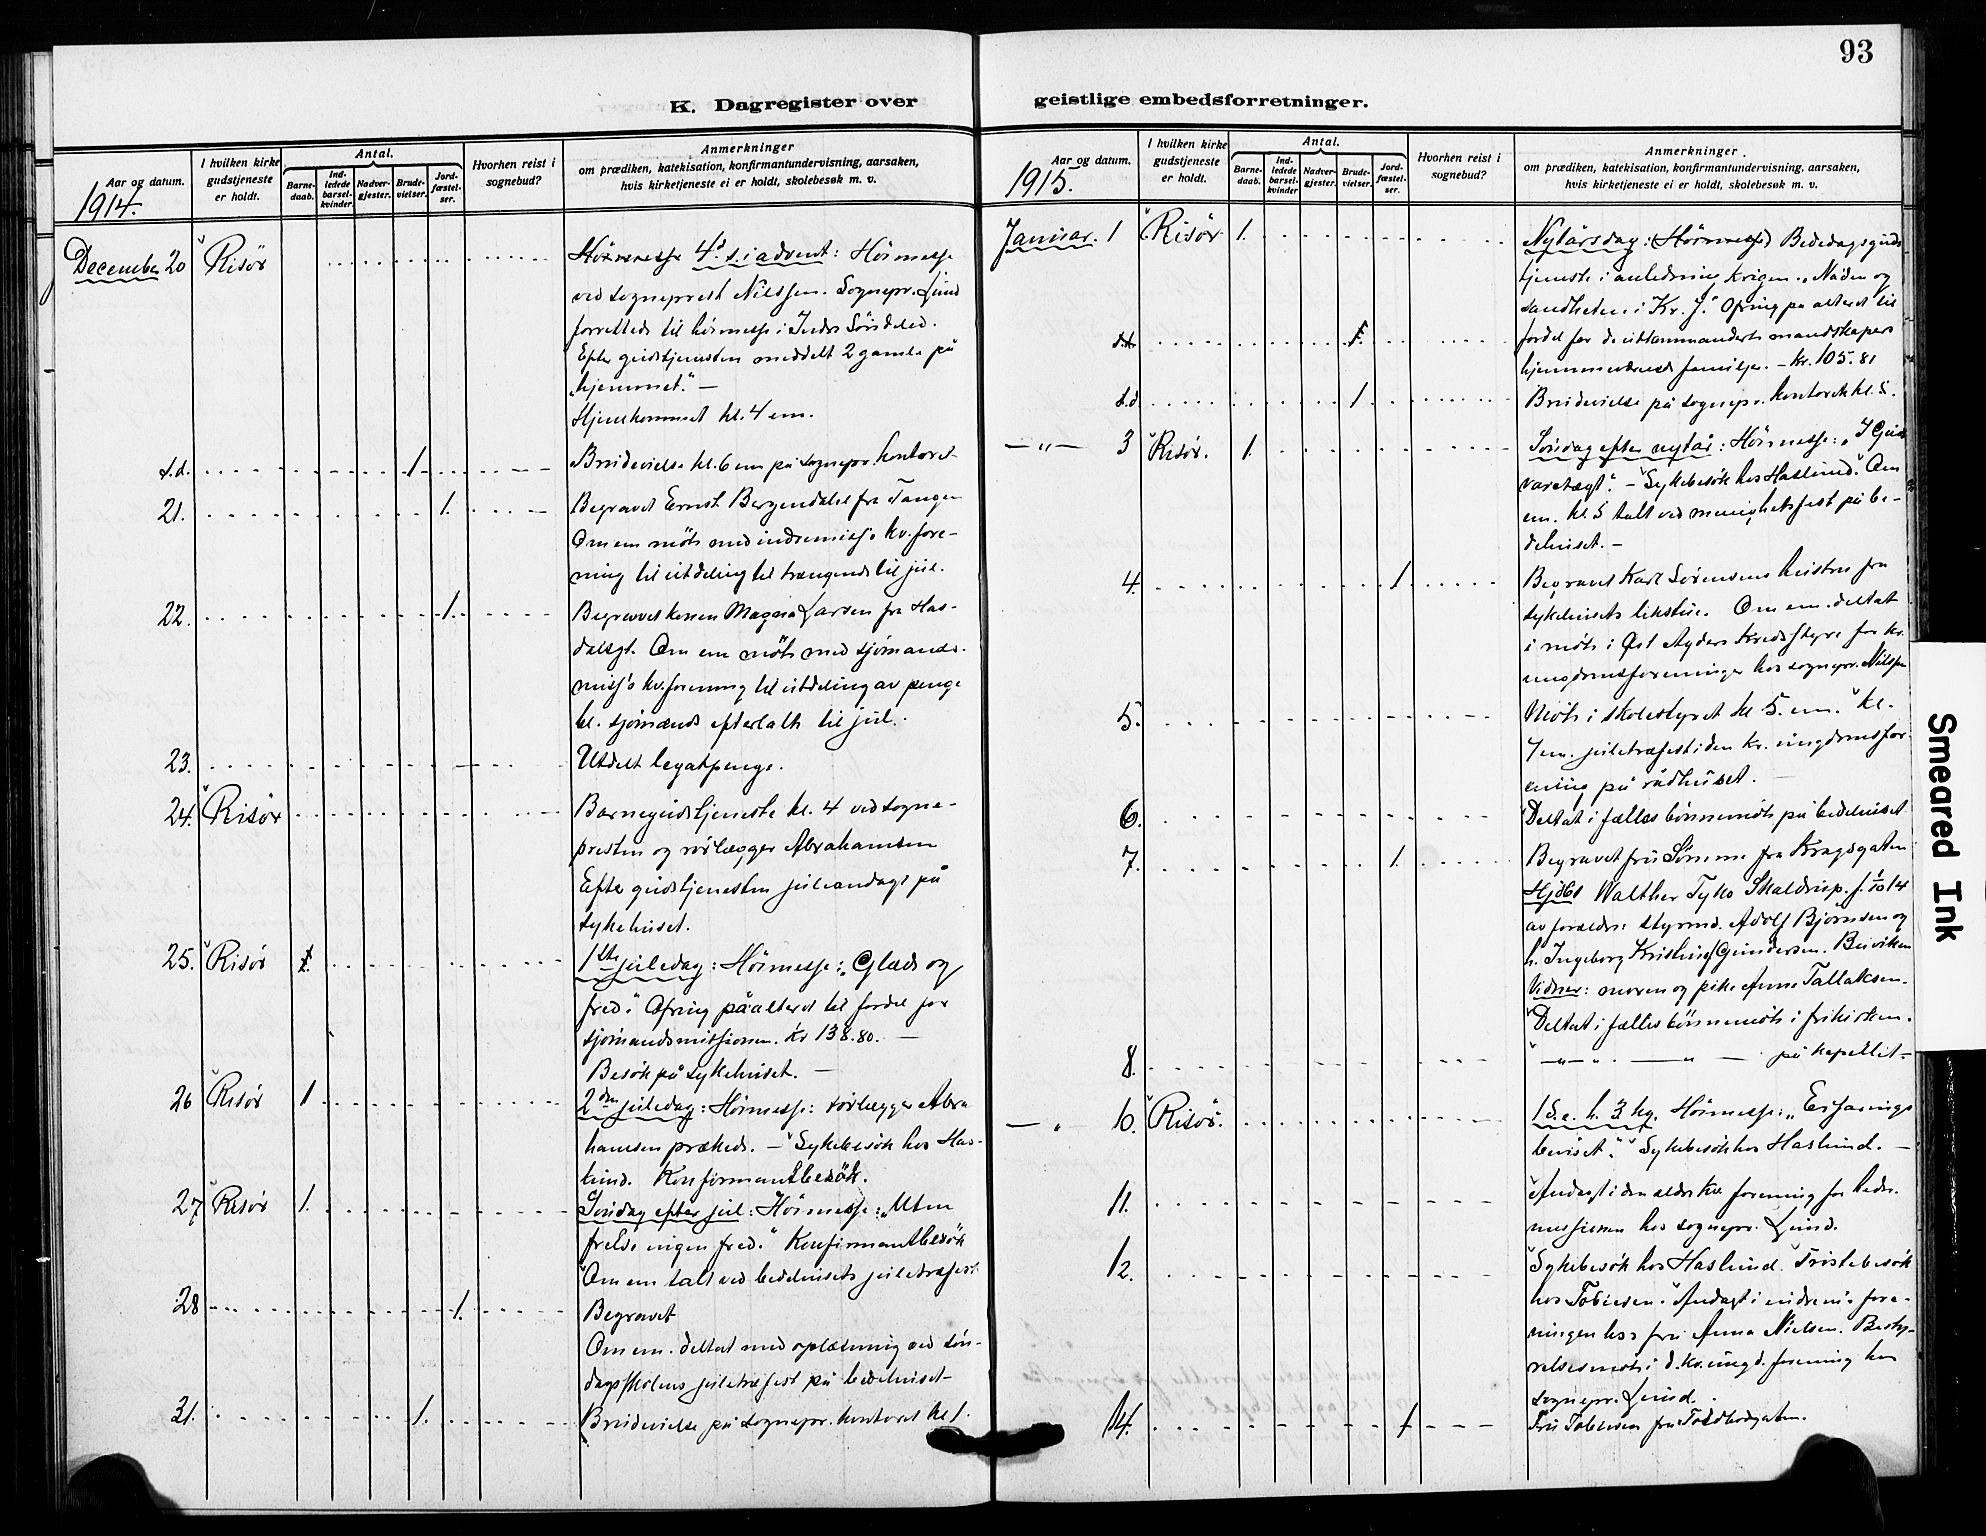 93
K. Dagregister over
geistlige embedsforretninger.
Aar og datum.
1914.
I hvilken kirke
gudstjeneste
er holdt.
Antal.
Barne-
daab.
Ind-
ledede
barsel-
kvinder.
Nadver-
gjester.
Brude-
vielser.
Jord-
fæstel-
ser.
Hvorhen reist i
sognebud?
Anmerkninger
om prædiken, katekisation, konfirmantundervisning, aarsaken,
hvis kirketjeneste ei er holdt, skolebesøk m. v.
December 20 Risör Hörmesse 4d s. i advent: Höimesse
ved sogneprest Nilssen. Sognepr. Lund
forrettede til höimesse i Indre Söndeled.
Efter gudstjenesten meddelt 2 gamle på
"hjemmet." —
Hjemkommet kl. 4 em.
s.d. 1 Brudevielse kl. 6 em på sognepr. kontoret
21. 1. Begravet Ernst Bergendahl fra Tangen
Om em möte med indremisj's kv.fore-
ning til utdeling til trængende til jul.
22. 1. Begravet konen Larsen fra Has-
dalsgt. Om em möte med sjömands-
misj's kv.forening til utdeling av penge
til sjömænds efterlatte til jul.
23. Utdelt legatpenge.
24. Risör Barnegudstjeneste kl. 4 ved sogne-
presten og rörlægger Abrahamsen
Efter gudstjenesten juleandagt på
sykehuset.
25. Risör 1ste juledag: Höimesse: "Glæde og
fred." Ofring på alteret til fordel for
sjömandsmissionen. Kr 138.80. —
Besök på sykehuset. —
26 Risör 1 2den juledag: Höimesse: rörlægger Abra
hamsen prækede. — Sykebesök hos Has-
lund. Konfirmantbesök.
27 Risör 1. Söndag efter jul: Höimesse: "Uten
frelse ingen fred." Konfirmantbesök
Om em talt ved bedehusets juletræfest
28 1. Begravet
Om em. deltat med oplæsning ved sön-
dagsskolens juletræfest på bedehuset—
31. 1. Brudevielse på sognepr. kontoret kl 1.
Aar og datum.
1915.
I hvilken kirke
gudstjeneste
er holdt.
Antal.
Barne-
daab.
Ind-
ledede
barsel-
kvinder
Nadver-
gjester.
Brude-
vielser.
Jord-
fæstel-
ser.
Hvorhen reist i
sognebud?
Anmerkninger
om prædiken, katekisation, konfirmantundervisning, aarsaken,
hvis kirketjeneste ei er holdt, skolebesøk m. v.
Januar. 1 Risör 1. Nytårsdag: (Höimesse) Bededagsguds
tjeneste i anledning krigen. "Nåden og
sandheden i Kr. J." Ofring på alteret til
s.d. 1 fordel for de utkommanderte mandskapers
hjemmeværende familjer. – Kr. 105.81
s.d. 1 Brudevielse på sognepr. kontoret kl. 5.
—"— 3 Risör. 1. Söndag efter nytår: Höimesse: "I Guds
varetægt." – Sykebesök hos Haslund. Om
em. kl. 5 talt ved menighetsfest på be-
dehuset. –
4. 1 Begravet Karl Sörensens hustru fra
sykehusets likstue. Om em. deltat
i möte i Øst Agders Kredsstyre for kr.
ungdomsforeninger hos sognepr. Nilssen
5. Möte i skolestyret kl 5. em. kl.
7 em. juletræfest i den kr. ungdomsfor-
ening på rådhuset.
6. Deltat i fælles bönnemöte på bedehuset
7. 1. Begravet fru Sömme fra Kragsgaten
Hjdbt Walther Tyko
av forældre: styrmd. Adolf Björnsen og
h. Ingeborg Kristine Gundersen. Buviken
Vidner: moren og pike Anne Tallaksen.
Deltat i fælles bönnemöte i frikirken.
8. —"— — " — på kapellet—
— " 10. Risör. 1 S. e. h. 3 kg. Höimesse: "Erfarings
beviset." Sykebesök hos Haslund. —
11. Andagt i den ældre kv. forening for hedn.
missionen hos sognepr. Lund.
12. Sykebesök hos Haslund. Tröstebesök
hos Tobiesen. Andagt i indrem's fore-
ningen hos fru Anna Nielsen. Besty-
relsesmöte i d. kr. ungd. forening hos
sognepr. Lund.
14. 1 Fru Tobiesen fra Toldbodgaten.
Smeared Ink